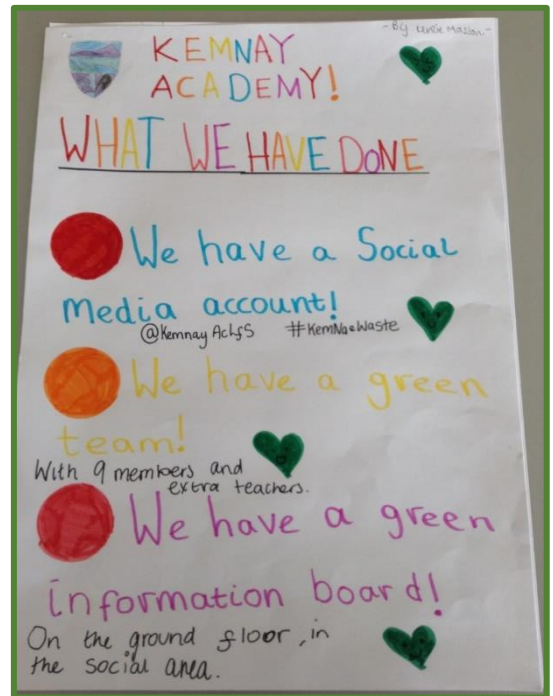 - By
KEMNAY
ACADEMY!
WHAT WE HAVE DONE
We have a Social
Media account!
@Kemnay AcLfS #KemNaeWaste
We have a green
team!
With 9 members and
extra teachers.
We have a green
information board!
On the ground floor, in
the social area.